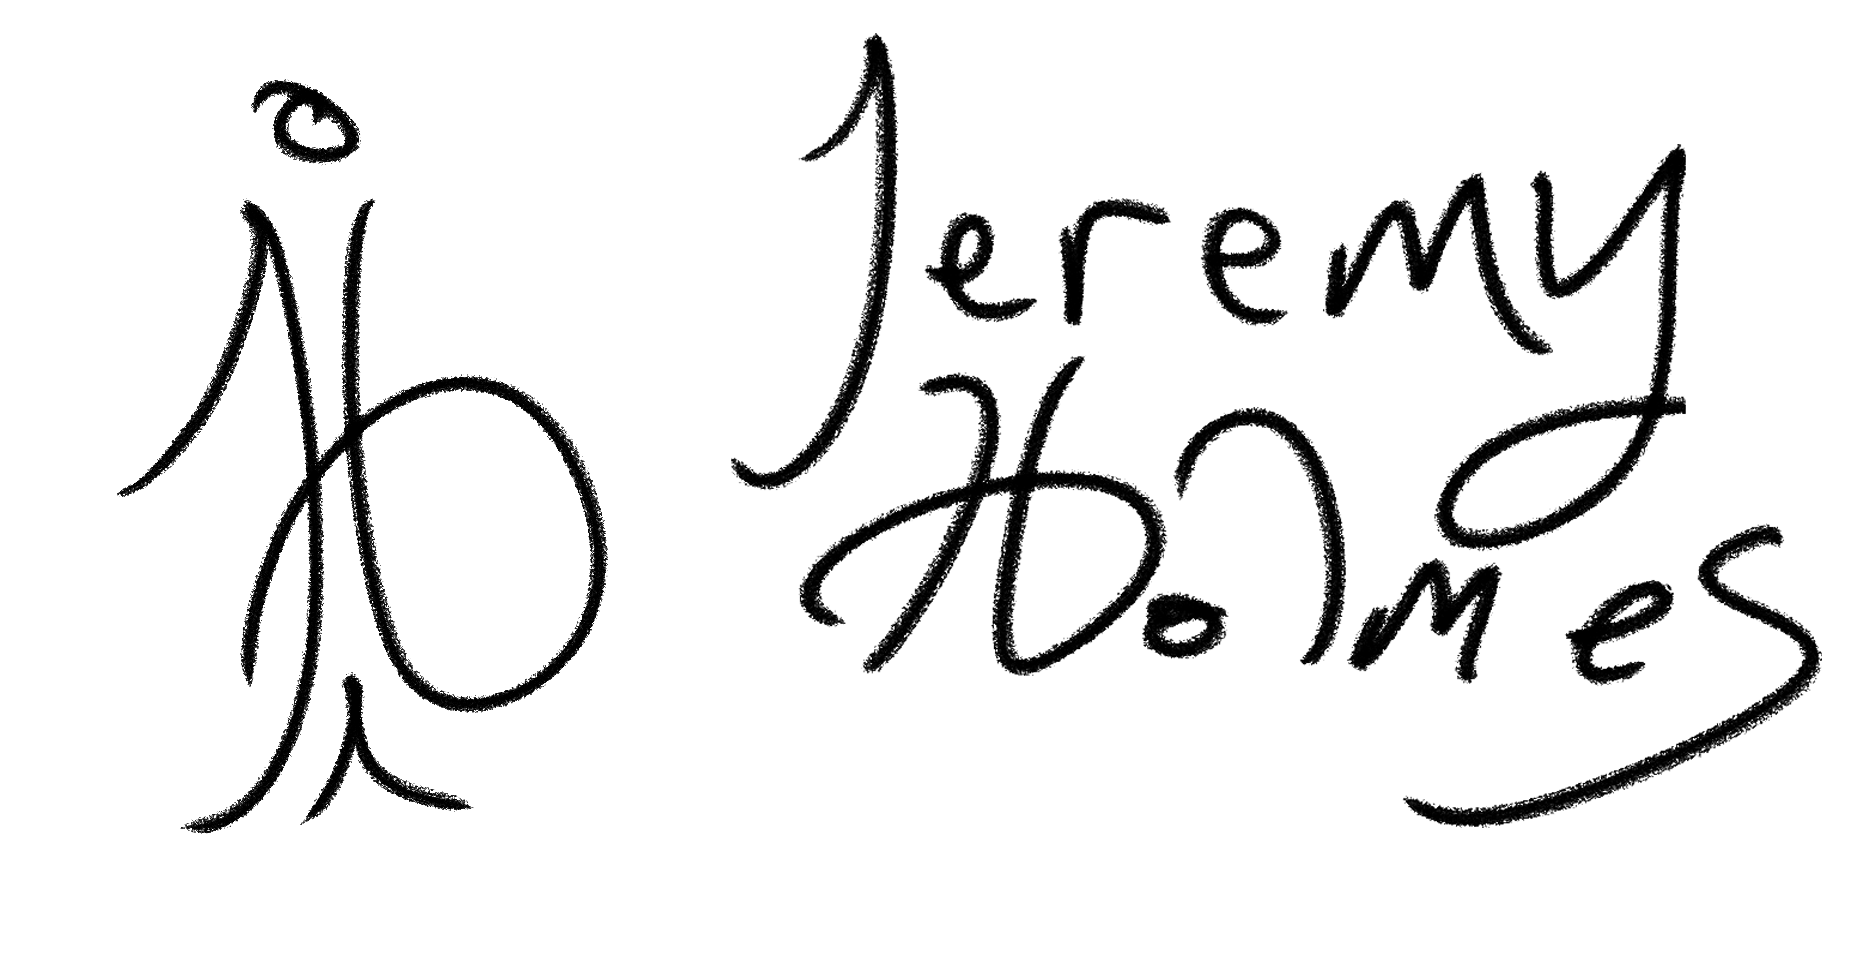 Jeremy
Holmes